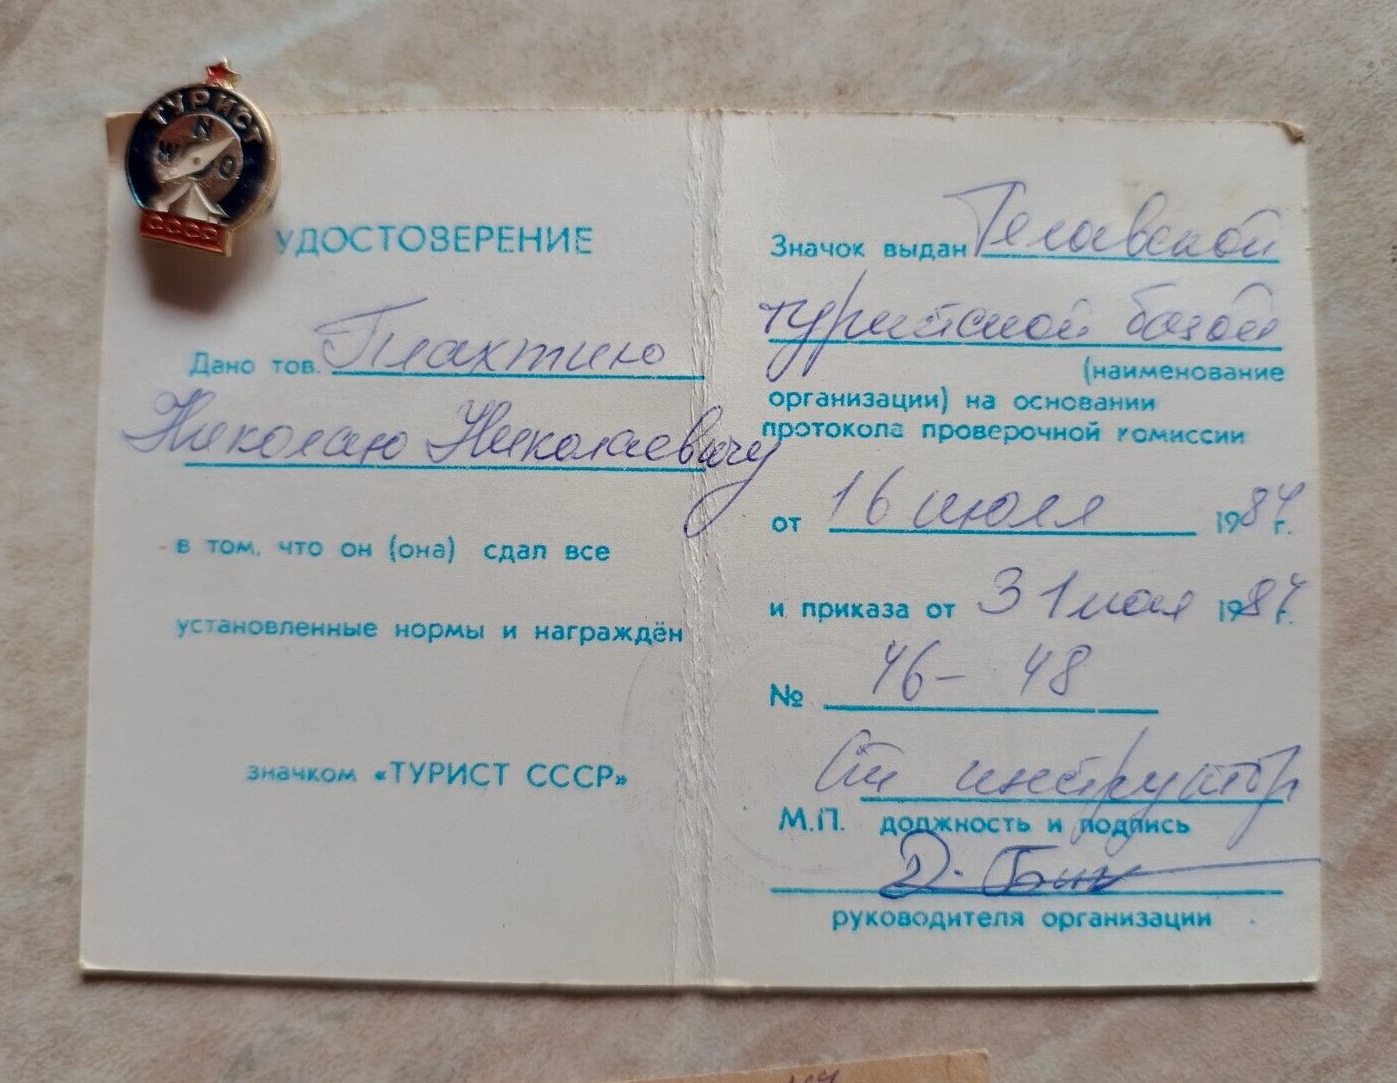 ТУРИСТ
N
W O
СССР
УДОСТОВЕРЕНИЕ
Дано тов. Плахтию
Николаю Николаевичу
в том, что он (она) сдал все
установленные нормы и награждён
значком «ТУРИСТ СССР»
Значок выдан Телавской
туристской базой
(наименование
организации) на основании
протокола проверочной комиссии
от 16 июля 1984 г.
и приказа от 31 мая 1984 г.
№ 46- 48
Ст инструктор
М.П. должность и подпись
руководителя организации